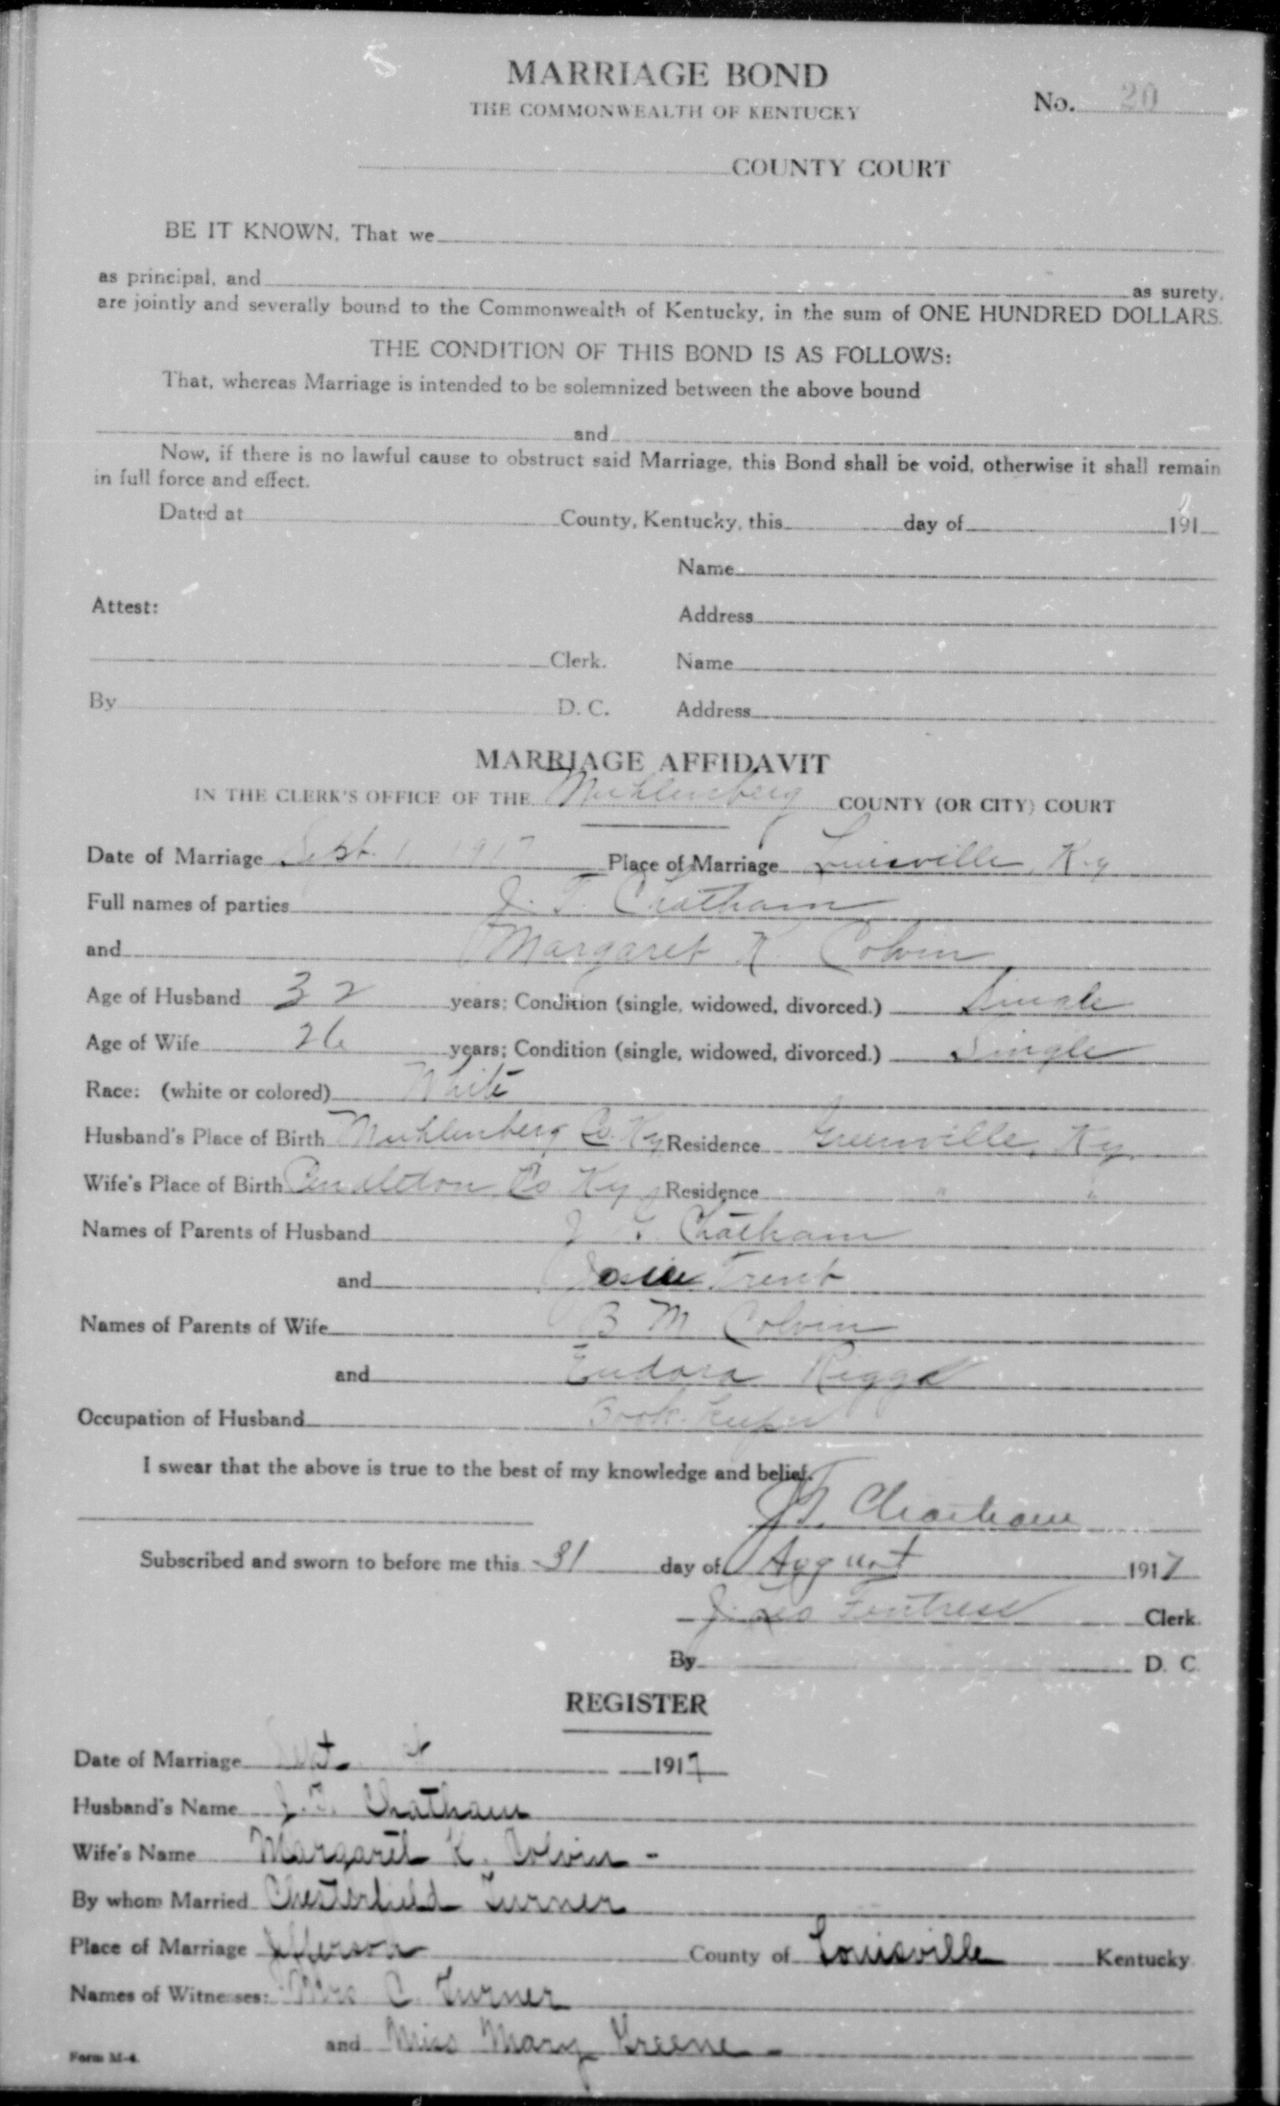 MARRIAGE BOND
THE COMMONWEALTH OF KENTUCKY
No. 20
COUNTY COURT
BE IT KNOWN, That we
as principal, and as surety,
are jointly and severally bound to the Commonwealth of Kentucky, in the sum of ONE HUNDRED DOLLARS.
THE CONDITION OF THIS BOND IS AS FOLLOWS:
That, whereas Marriage is intended to be solemnized between the above bound
and
Now, if there is no lawful cause to obstruct said Marriage, this Bond shall be void, otherwise it shall remain
in full force and effect.
Dated at County, Kentucky, this day of 191
Name
Attest:
Address
Clerk. Name
By D. C. Address
MARRIAGE AFFIDAVIT
IN THE CLERK'S OFFICE OF THE Muhlenberg COUNTY (OR CITY) COURT
Date of Marriage Sept. 1 1917 Place of Marriage Louisville, Ky
Full names of parties J. T. Chatham
and Margaret K. Colvin
Age of Husband 32 years; Condition (single, widowed, divorced.) Single
Age of Wife 26 years; Condition (single, widowed, divorced.) Single
Race: (white or colored) White
Husband's Place of Birth Muhlenberg Co. Ky Residence Greenville, Ky.
Wife's Place of Birth Pendleton Co Ky Residence " "
Names of Parents of Husband J. Chatham
and Josie Trent
Names of Parents of Wife B M Colvin
and Eudora Riggs
Occupation of Husband Book-keeper
I swear that the above is true to the best of my knowledge and belief.
J.T. Chatham
Subscribed and sworn to before me this 31 day of August 1917
J. Leo Fentress Clerk.
By D. C.
REGISTER
Date of Marriage Sept. 1917
Husband's Name J. T. Chatham
Wife's Name Margaret K. Colvin -
By whom Married Chesterfield Turner
Place of Marriage Jefferson County of Louisville Kentucky
Names of Witnesses: Mrs C. Turner
and Miss Mary Greene -
Form M-4.